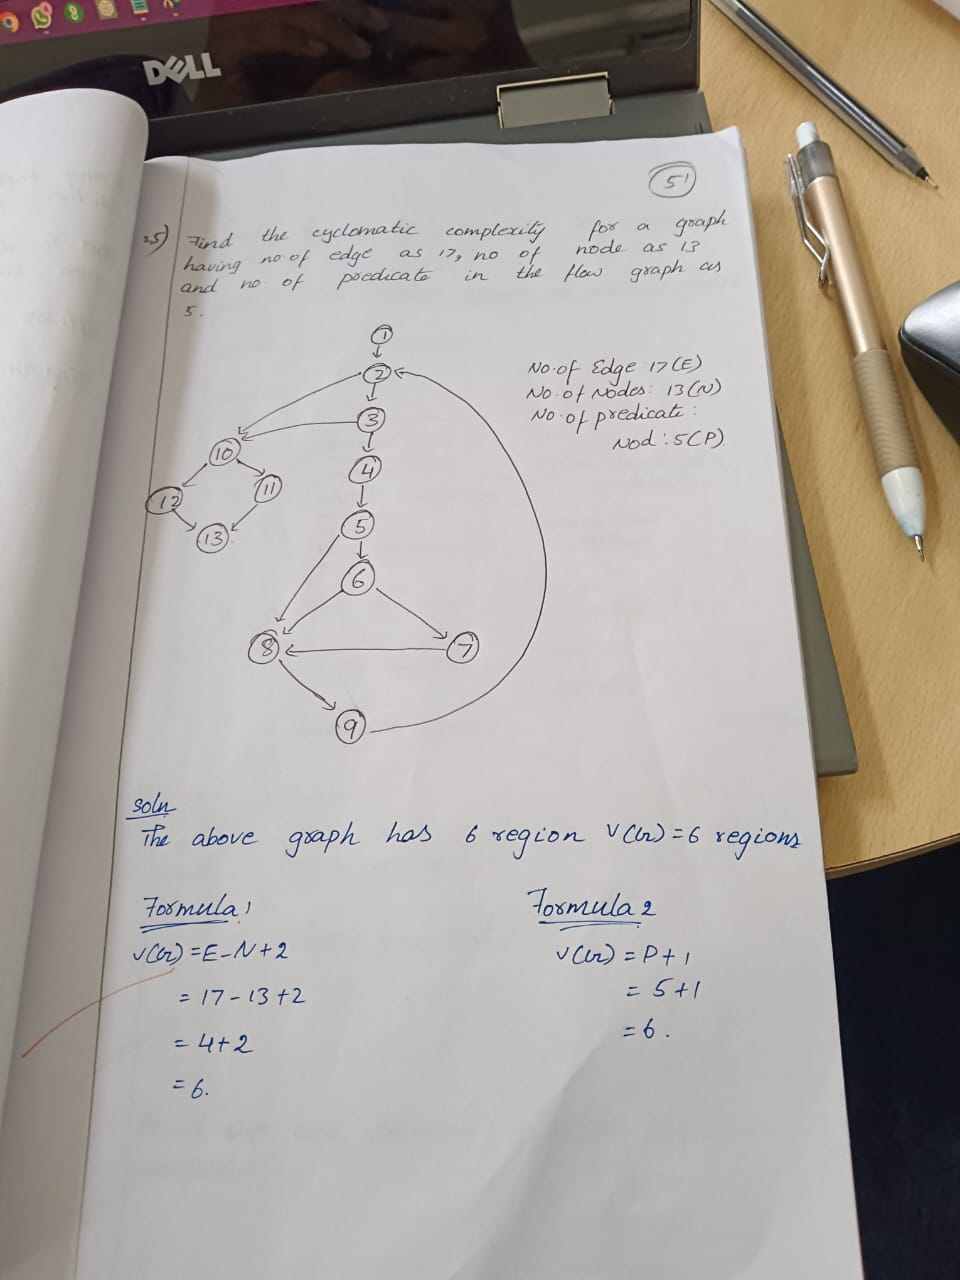 DELL
51
25) Find the cyclomatic complexity for a graph
having no of edge as 17, no of node as 13
and no of predicate in the flow graph as
5.
1
2
3
10
4
12
11
5
13
6
8
7
9
No. of Edge: 17(E)
No. of Nodes: 13(N)
No. of predicate:
Nod: 5(P)
Soln
The above graph has 6 region V(G) = 6 regions
Formula 1
V(G) = E-N+2
= 17-13+2
= 4+2
= 6.
Formula 2
V(G) = P+1
= 5+1
= 6.